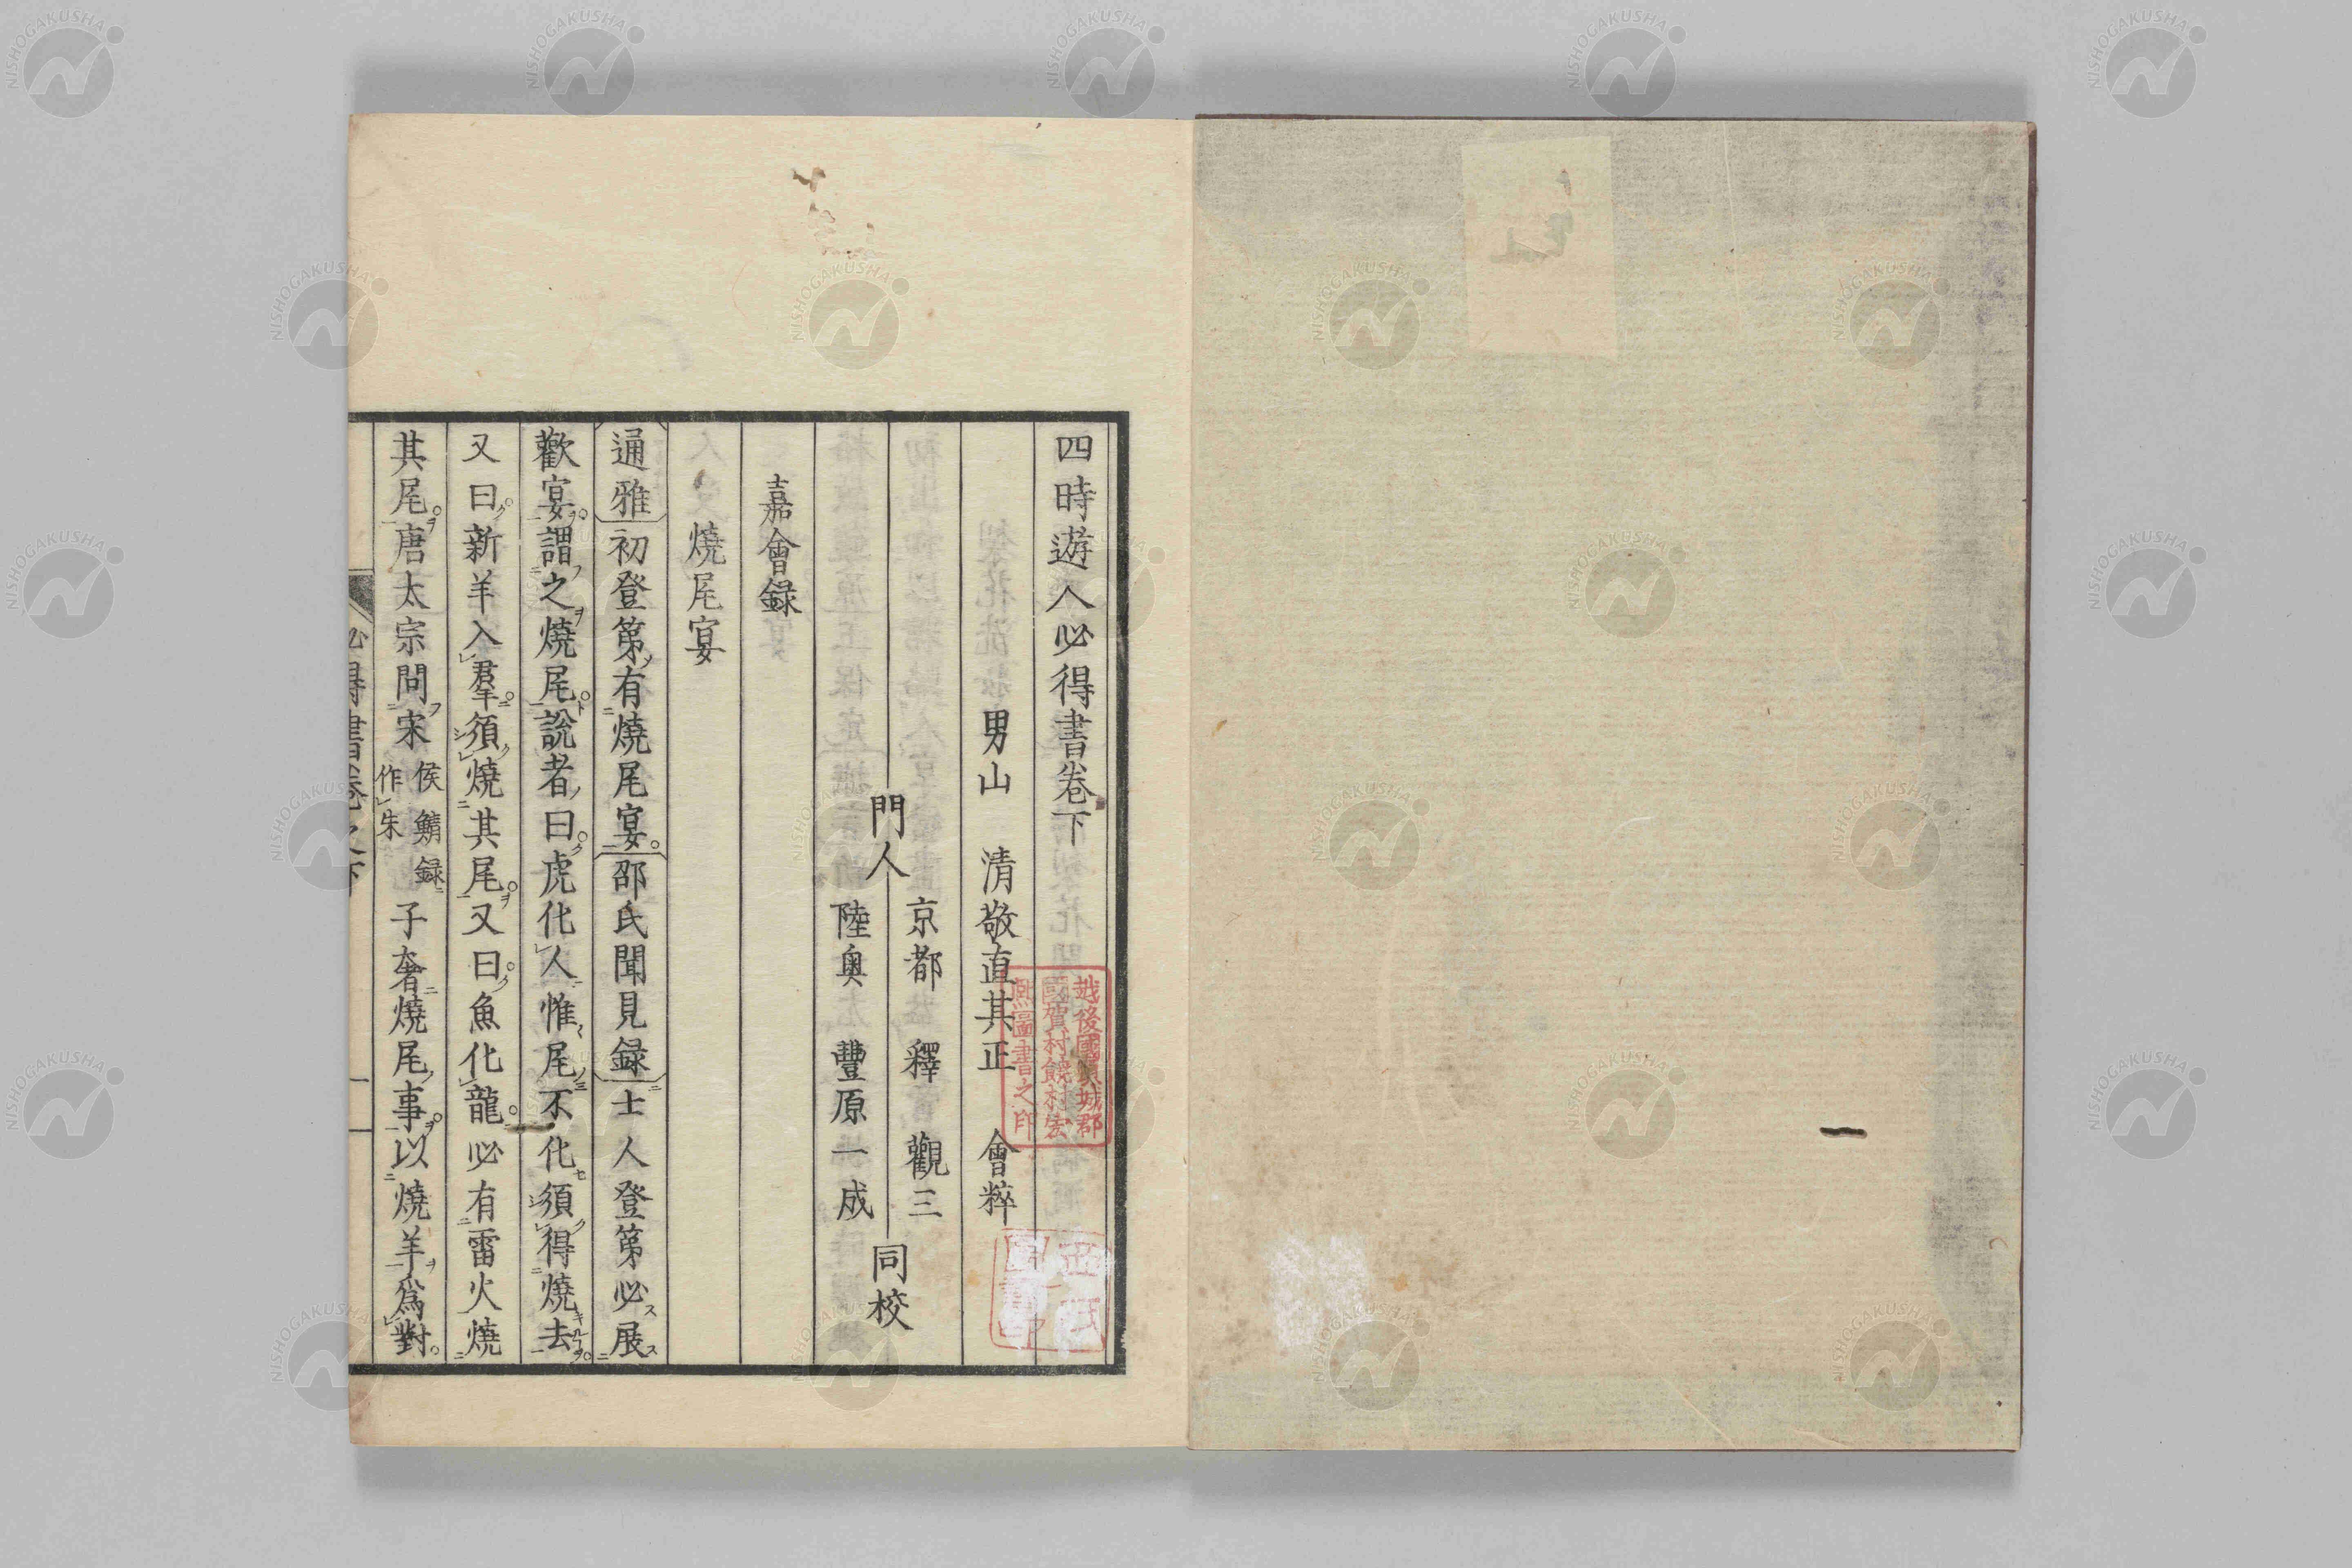 四時遊人必得書卷下
男山 清敬直其正 會粹
門人
京都 釋 觀三
陸奥 豐原一成
同校
嘉會録
燒尾宴
通雅初登第有燒尾宴邵氏聞見録士人登第必展
歡宴謂之燒尾說者曰虎化人惟尾不化須得燒去
又曰新羊入羣須燒其尾又曰魚化龍必有雷火燒
其尾唐太宗問宋侯鯖録作朱子奢燒尾事以燒羊爲對
必得書卷之下
一
越後國頸城郡
熈圖書之印
NISHOGAKUSHA